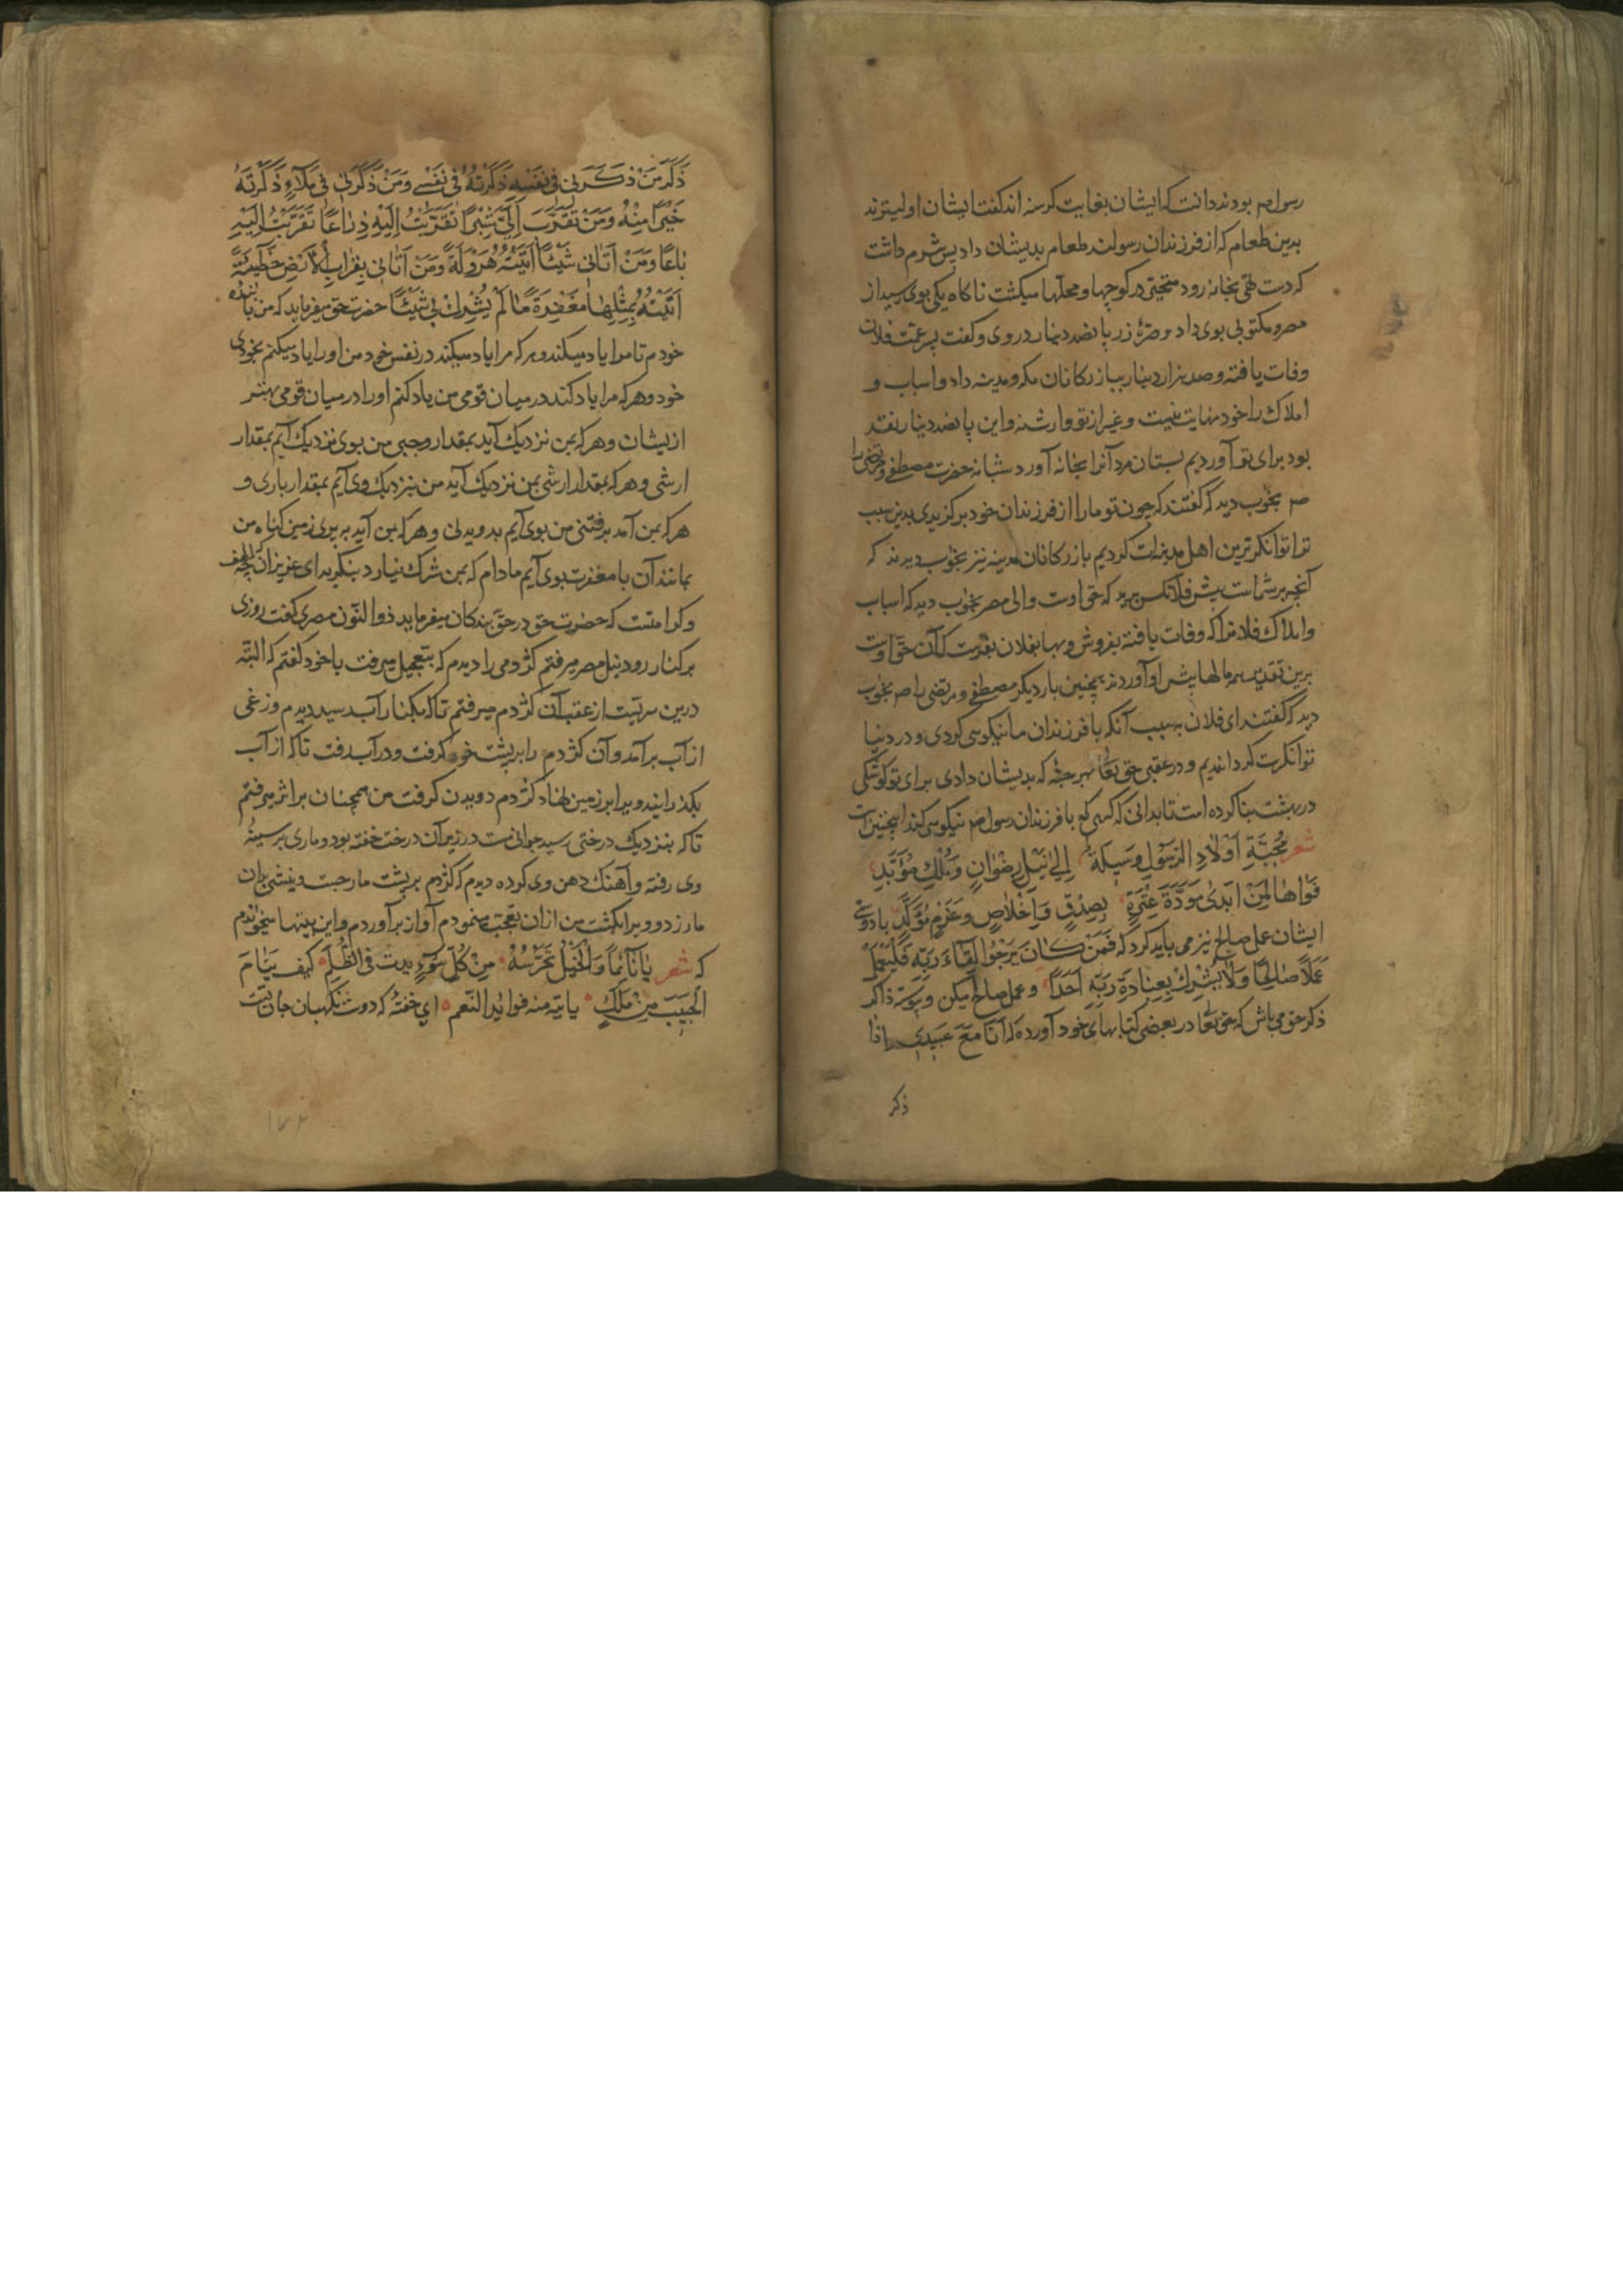 رسول صم بودند دانست که ایشان بغایت کرسنه اند کفت ایشان اولیترند
بدین طعام که از فرزندان رسولند طعام بدیشان داد پس شرم داشت
که دست تهی بخانه رود متحیر در کوچها و محلها میکشت ناکاه یکی بوی رسید از
مصر و مکتوبی بوی داد و صرهٔ زر پانصد دینار در وی و کفت پسر عمت فلان
وفات یافته و صد هزار دینار ببازرکانان مکه و مدینه داد و اسباب و
املاک را خود نهایت نیست و غیر از تو وارث نه و این پانصد دینار نقد
بود برای تو آوردیم بستان مرد آنرا بخانه آورد شبانه حضرت مصطفی و مرتضی را
صم بخوب دید که کفتند که چون تو ما را از فرزندان خود برکزیدی بدین سبب
ترا توانکرترین اهل مدینه کردیم بازرکانان مدینه نیز بخوب دیدند که
آنچه بر شماست پیش فلانکس برید که حق اوست و والی مصر بخوب دید که اسباب
و املاک فلانرا که وفات یافته بفروش و بها بفلان بفرست که آن حق اوست
برین تقدیر همه مالها پیش او آوردند همچنین بار دیکر مصطفی و مرتضی را صم بخوب
دید که کفتند ای فلان بسبب آنکه با فرزندان ما نیکویی کردی و در دنیا
توانکرت کردانیدیم و در عقبی حق تعا بهر حبهٔ که بدیشان دادی برای تو کوشکی
در بهشت بنا کرده است تا بدانی که کسی که با فرزندان رسول صم نیکویی کند اینچنین است
شعر مَحَبَّةِ اَوْلَادِ الرَّسُولِ وَسِیلَةٌ اِلَی نَیْلِ رِضْوَانٍ وَمُلْكٍ مُؤَبَّدِ
فَوَاهًا لِمَنْ اَبْدَی مَوَدَّةَ عِتْرَةٍ بِصِدْقٍ وَاِخْلَاصٍ وَعَزْمٍ مُؤَكَّدِ با دوستی
ایشان عمل صالح نیز می باید کرد که فَمَنْ كَانَ یَرْجُوا لِقَاءَ رَبِّهِ فَلْیَعْمَلْ
عَمَلًا صَالِحًا وَلَا یُشْرِكْ بِعِبَادَةِ رَبِّهِ اَحَدًا و عمل صالح میکن و پیوسته ذاکر
ذکر حق می باش که حق تعا در بعضی کتابهای خود آورده که اَنَا مَعَ عَبْدِی اِذَا
ذکر
ذَكَرَ مَنْ ذَكَرَنِی فِی نَفْسِهِ ذَكَرْتُهُ فِی نَفْسِی وَمَنْ ذَكَرَنِی فِی مَلَاءٍ ذَكَرْتُهُ
خَیْرًا مِنْهُ وَمَنْ تَقَرَّبَ اِلَیَّ شِبْرًا تَقَرَّبْتُ اِلَیْهِ ذِرَاعًا تَقَرَّبْتُ اِلَیْهِ
بَاعًا وَمَنْ اَتَانِی شَیْئًا اَتَیْتُهُ هَرْوَلَةً وَمَنْ اَتَانِی بِقِرَابِ الْاَرْضِ خَطِیئَةً
اَتَیْتُهُ بِمِثْلِهَا مَغْفِرَةً مَا لَمْ یُشْرِكْ بِی شَیْئًا حضرت حق میفرماید که من با بنده
خودم تا مرا یاد میکند و هر که مرا یاد میکند در نفس خود من او را یاد میکنم بخودی
خود و هر که مرا یاد کند در میان قومی من یاد کنم او را در میان قومی بهتر
ازیشان و هر که بمن نزدیک آید بمقدار وجبی من بوی نزدیک آیم بمقدار
ارشی و هر که بمقدار ارشی بمن نزدیک آید من بنزدیک وی آیم بمقدار باری و
هر که بمن آمد برفتنی من بوی آیم بدویدنی و هر که بمن آید به پری زمین کناه من
بمانند آن با مغفرت بوی آیم مادام که بمن شرک نیارد بنکرید ای عزیزان که چه لطف
و کرامتست که حضرت حق در حق بندکان میفرماید ذوالنّون مصری کفت روزی
بر کنار رود نیل مصر میرفتم کژدمی را دیدم که بتعجیل میرفت با خود کفتم که البتّه
درین سرّیست از عقب آن کژدم میرفتم تا که بکنار آب رسید دیدم وزغی
از آب برآمد و آن کژدم را بر پشت خود کرفت و در آب رفت تا که از آب
بکذرانید و برابر زمین نهاد کژدم دویدن کرفت من همچنان بر اثر میرفتم
تا که بنزدیک درختی رسید جوانی مست در زیر آن درخت خفته بود و ماری بر سینهٔ
وی رفته و آهنک دهن وی کرده دیدم که کژدم بر پشت مار جست و نیشی بران
مار زد و ویرا بکشت من ازان تعجب مینمودم آواز برآوردم و این بیتها میخواندم
که شعر یَا نَائِمًا وَالْخَلِیلُ یَحْرُسُهُ مِنْ كُلِّ سُوءٍ یدبّ فِی الظُّلَمِ كَیْفَ یَنَامُ
الحبیب مِنْ مَلِكٍ یاتیه منه فوائد النّعم ای خفتهٔ که دوست نکهبان جان تست
۱۷۲